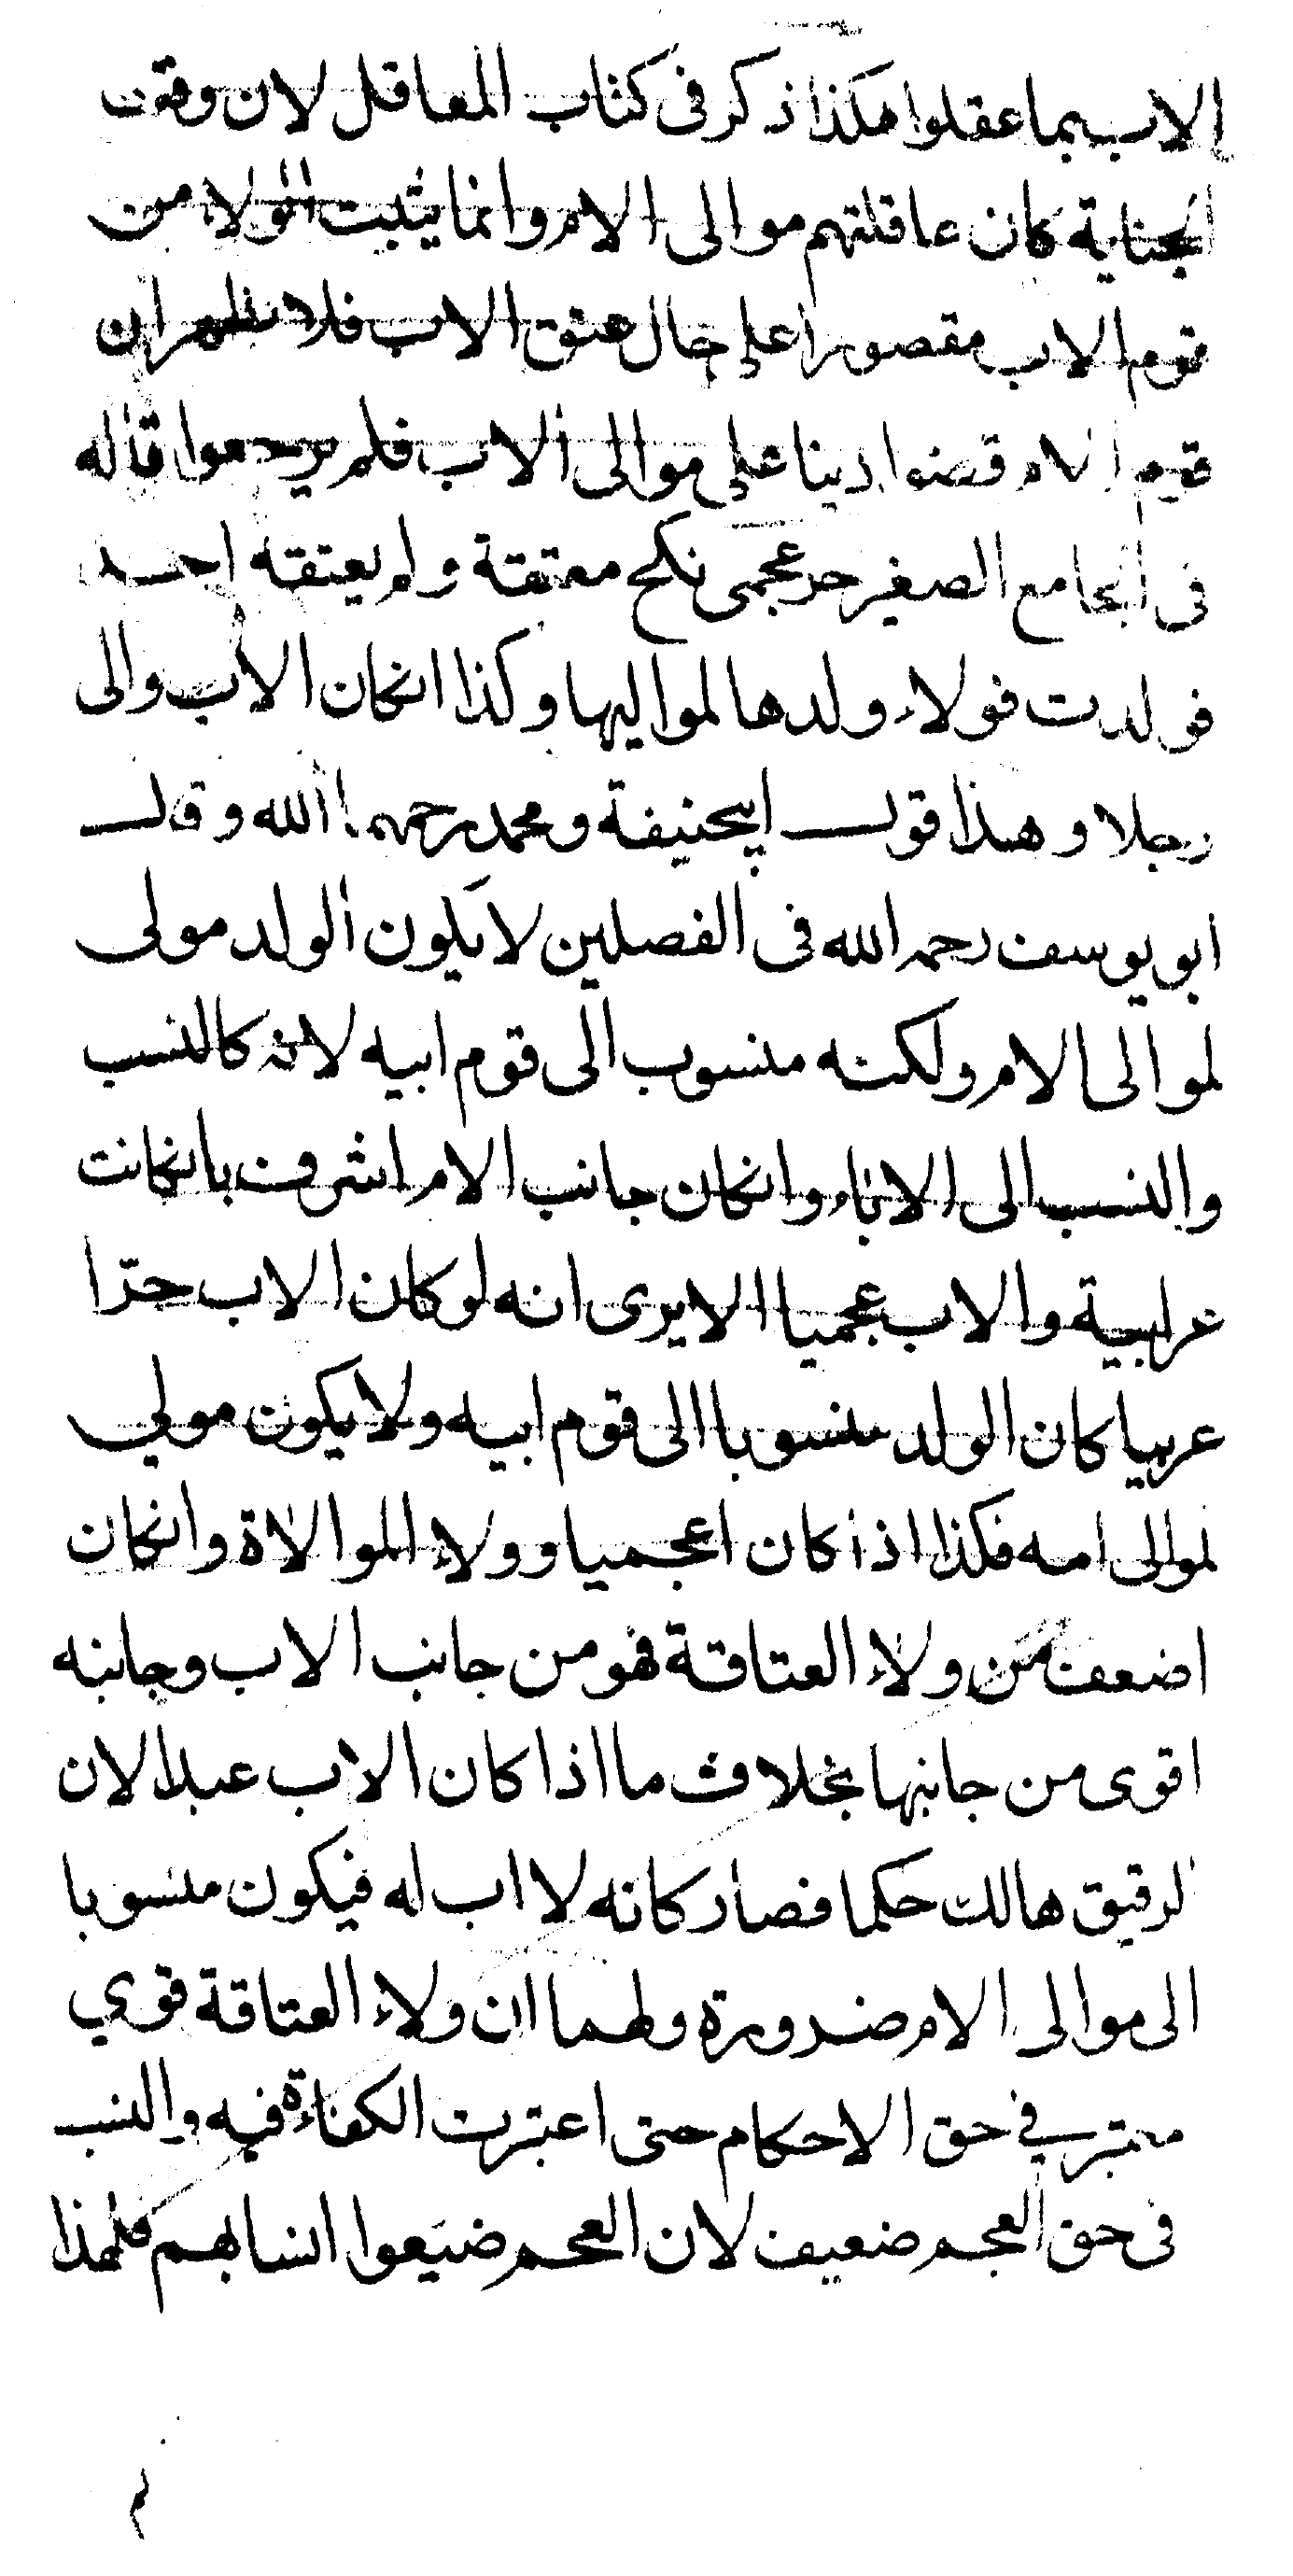 الاب بما عقلوا هكذا ذكر فى كتاب المعاقل لان وقت
الجناية كان عاقلتهم موالى الام وانما يثبت الولاء من
قوم الاب مقصورا على حال عتق الاب فلا يظهر ان
قوم الام قضوا دينا على موالى الاب فلم يرجعوا قاله
فى الجامع الصغير حر عجمى نكح معتقة ولم يعتقه احد
فولدت فولاء ولدها لمواليها وكذا انكان الاب والى
رجلا وهذا قول ابيحنيفة ومحمد رحمهما الله وقال
ابو يوسف رحمه الله فى الفصلين لا يكون الولد مولى
لموالى الام ولكنه منسوب الى قوم ابيه لانه كالنسب
والنسب الى الاباء وانكان جانب الام اشرف بانكانت
عرابية والاب عجميا الا يرى انه لو كان الاب حرّا
عربيا كان الولد منسوبا الى قوم ابيه ولا يكون مولي
لموالى امه فكذا اذا كان اعجميا وولاء الموالاة وانكان
اضعف من ولاء العتاقة فهو من جانب الاب وجانبه
اقوى من جانبها بخلاف ما اذا كان الاب عبدا لان
الرقيق هالك حكما فصار كانه لا اب له فيكون منسوبا
الى موالى الام ضرورة ولهما ان ولاء العتاقة قوي
معتبر في حق الاحكام حتى اعتبرت الكفاءة فيه والنسب
فى حق العجم ضعيف لان العجم ضيعوا انسابهم فلهذا
لم